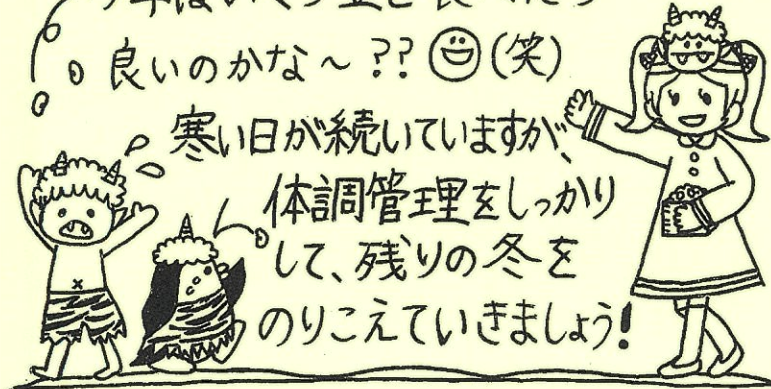 良いのかな～??(笑)
寒い日が続いていますが、
体調管理をしっかり
して、残りの冬を
のりこえていきましょう!